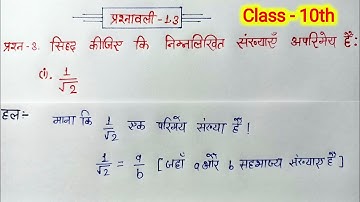 प्रश्नावली - 1.3
Class - 10th
प्रश्न - 3. सिद्ध कीजिए कि निम्नलिखित संख्याएँ अपरिमेय हैं:
(i). 1/√2
हल:-
माना कि 1/√2 एक परिमेय संख्या है !
1/√2 = a/b [ जहाँ a और b सहभाज्य संख्याएँ हैं ]